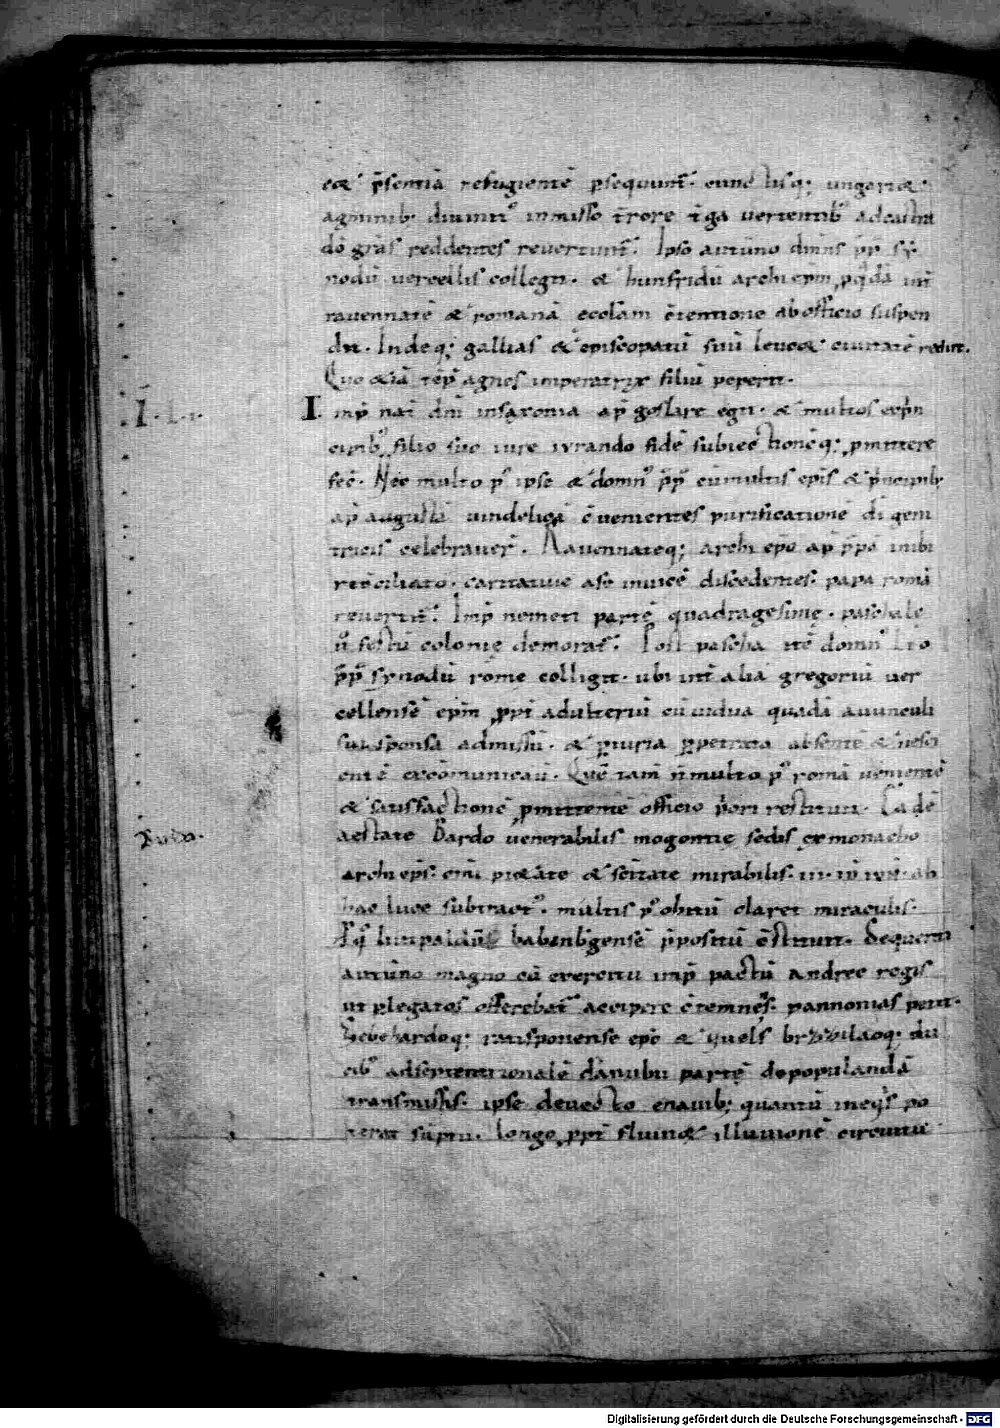 eius p̄sentiā refugientē p̄sequunt̄. cunctisq; ungariae
agminib; diuinit᷒ inmisso t̄rore t̄ga uertentib᷒ ad castra
dō grās reddentes reuertunt̄. Ipso autūno dn̄ns p̄p̄ sy
nodū uercellis collegit. & hunfridū archiep̄m ꝓpt̄ quādā int̄
rauennatē & romanā eccl̄am c̄tentione ab officio suspen
dit. Indeq; gallias & episcopatū suū leucae ciuitatē rediit.
Quo etiā tēp̄ agnes imperatrix filiū peperit.
I·L·I· Imp̄ nat̄ dn̄i in saxonia ap̄ goslare egit. & multos exp̄n
cipib᷒ filio suo iure iurando fidē subiectionēq; ꝓmittere
fec̄. Nec multo p᷒ ipse & domn᷒ p̄p̄ cū multis ep̄is & p̄ncipib;
ap̄ augustā uindelicā c̄uenientes purificationē dī geni
tricis celebrauer̄. Rauennateq; archiep̄o ap̄ p̄pā inibi
recōciliato. caritatiue a se inuicē discedentes. papa romā
reuertit̄. Imp̄ nemeti partē quadragesimę. paschale
u᷒ festū colonię demorat̄. Post pascha itē domn᷒ leo
p̄p̄ synodū romę colligit. ubi int̄ alia gregoriū uer
cellensē ep̄m ꝓpt̄ adulteriū cū uidua quadā auunculi
sui sponsa admissū. & ꝑiuria ꝑpetrata absentē & nesci
entē excōmunicauit̄. Quē tam̄ n̄ multo p᷒ romā uenientē
& satisfactionē ꝓmittentē officio p̄ori restituit. Eadē
aestate Bardo uenerabilis mogontię sedis ex monacho
archiep̄s. om̄i pietate & sc̄itate mirabilis. ab
hac luce subtract᷒. multis p᷒ obitū claret miraculis.
liutpaldū babenb̄gensē p̄positū c̄stituit. Sequenti
autūno magno cū exercitu imp̄ pactū andree regis
ut ꝑ legatos offerebat̄ accipere c̄temnēs. pannonias petit.
Gebehardoq; ratisponense ep̄o & guelf brezzilaoq; du
cib᷒ ad septentrionalē danubii partē depopulandā
transmissis. ipse deuecto nauib; quantū in eq̄s po
terat sūptu. longe ꝓpt̄ fluuiae illuuionē circuitu